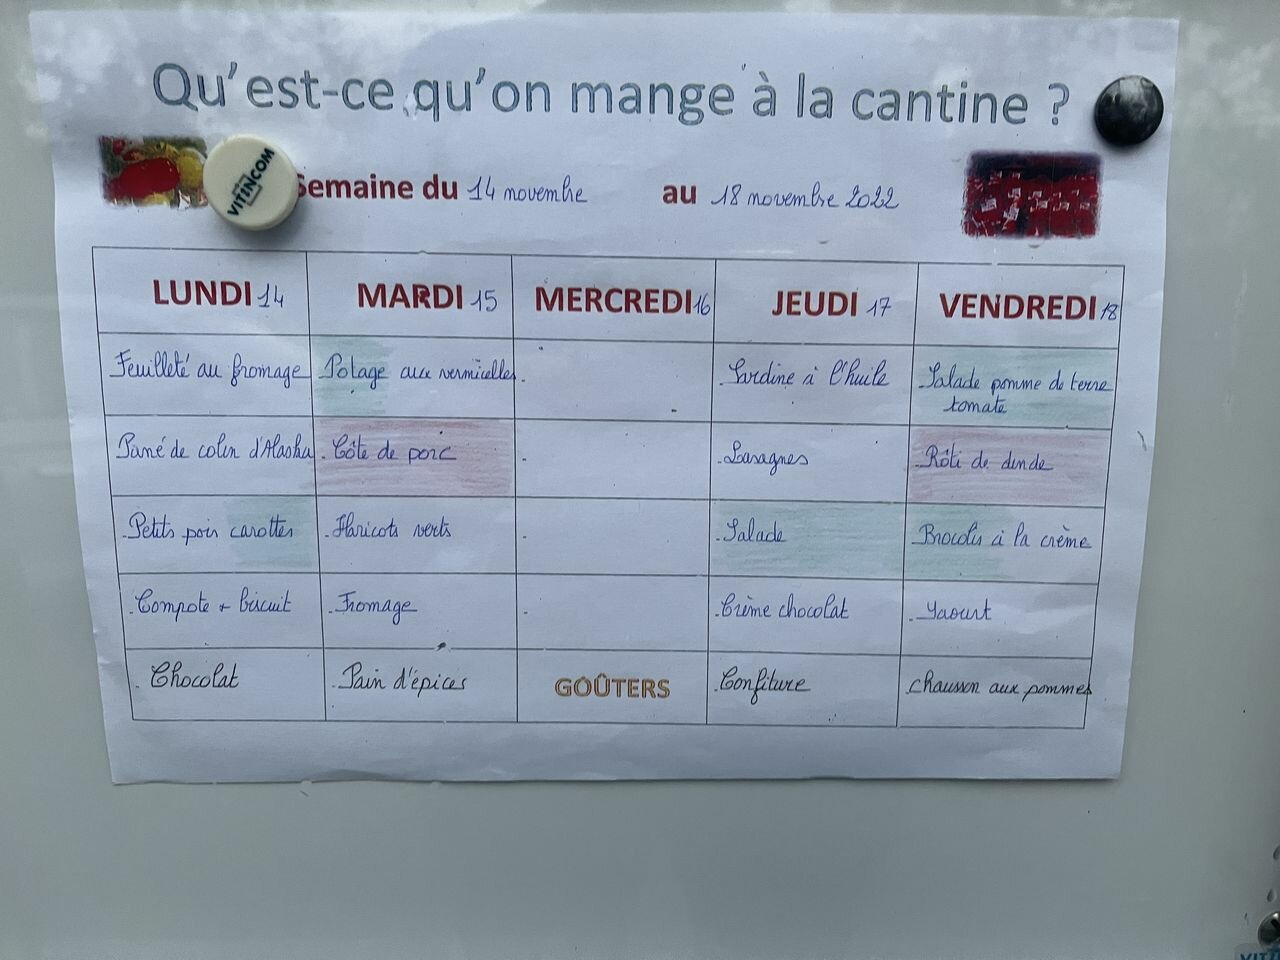 Qu'est-ce qu'on mange à la cantine ?
VITINCOM
Semaine du 14 novembre au 18 novembre 2022
LUNDI 14 MARDI 15 MERCREDI 16 JEUDI 17 VENDREDI 18
Feuilleté au fromage Potage aux vermicelles . . Sardine à l'huile . Salade pomme de terre
tomate
Pané de colin d'Alaska . Côte de porc . . Lasagnes . Rôti de dinde
. Petits pois carottes . Haricots verts . . Salade . Brocolis à la crème
. Compote + biscuit . Fromage . . Crème chocolat . Yaourt
. Chocolat . Pain d'épices GOÛTERS . Confiture . chausson aux pommes